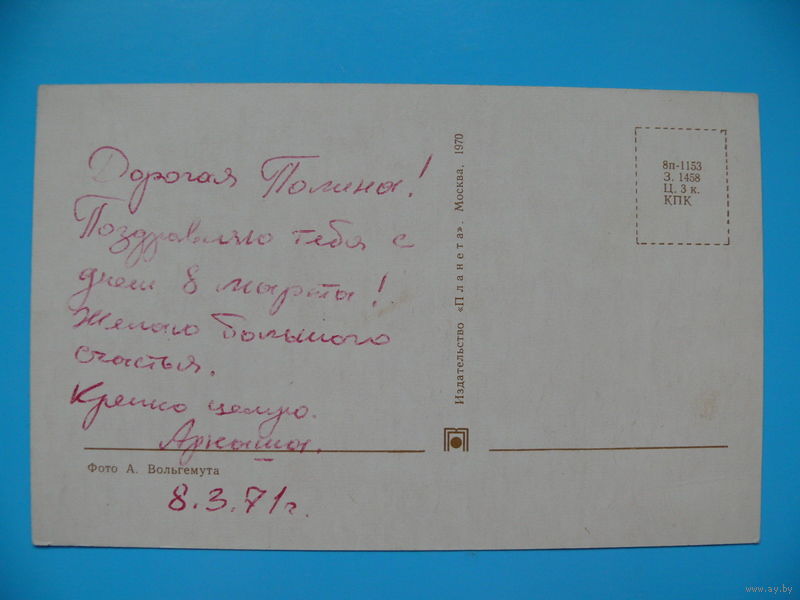 Дорогая Полина!
Поздравляю тебя с
днем 8 марта!
Желаю большого
счастья.
Крепко целую.
Аркаша.
8.3.71г.
Фото А. Вольгемута
Издательство «Планета». Москва, 1970
8п-1153
З. 1458
Ц. 3 к.
КПК
www.ay.by